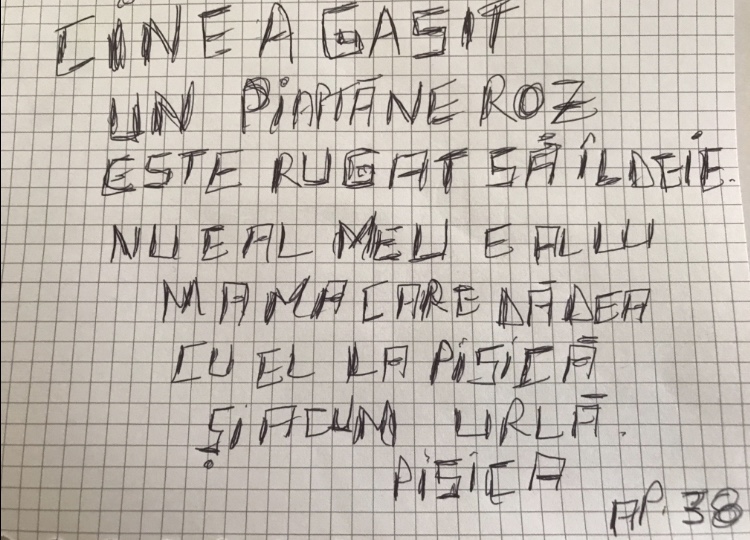 CINE A GASIT
UN PIAPTĂNE ROZ
ESTE RUGAT SĂ ÎL DEIE.
NU E AL MEU E AL LU
MAMA CARE DĂDEA
CU EL LA PISICĂ
ȘI ACUM URLĂ.
PISICA
AP. 38